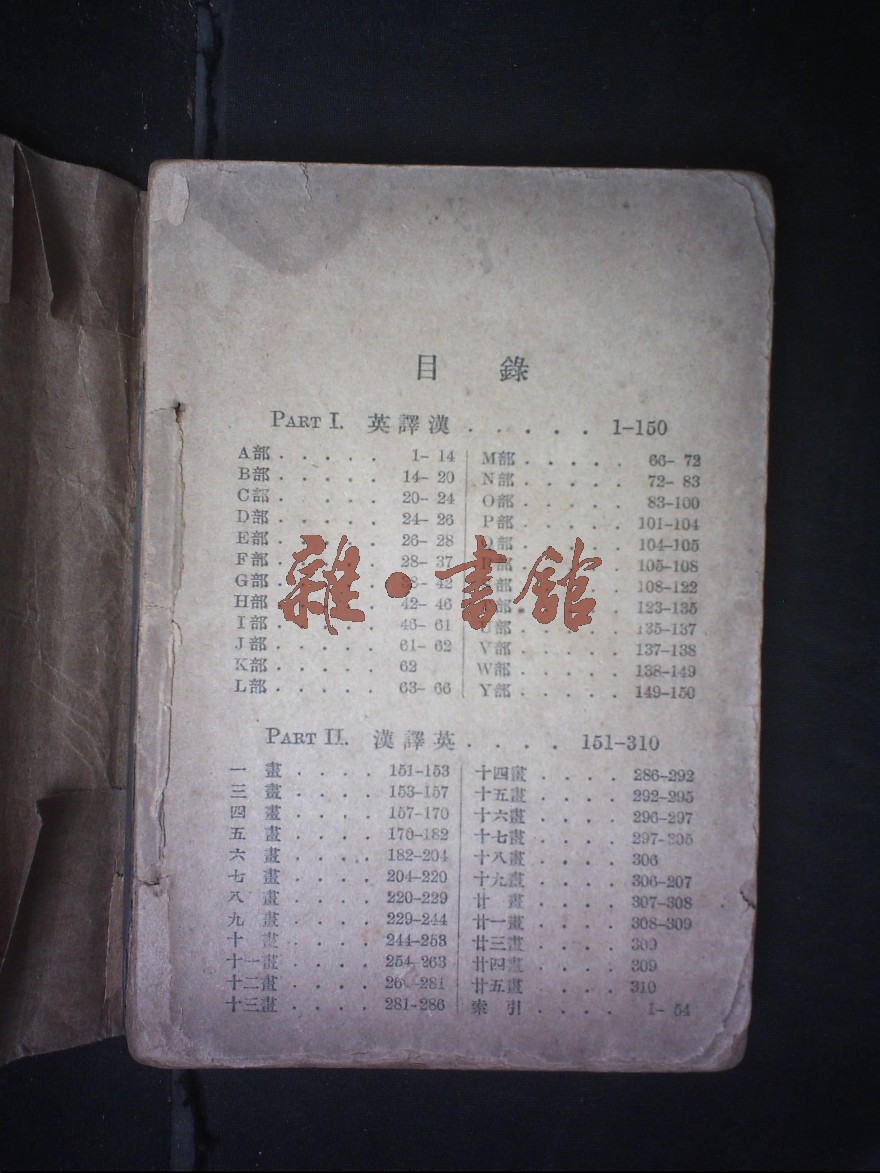 目 錄
PART I. 英譯漢 . . . . . 1-150
A部 . . . . . 1- 14
B部 . . . . . 14- 20
C部 . . . . . 20- 24
D部 . . . . . 24- 26
E部 . . . . . 26- 28
F部 . . . . . 28- 37
G部 . . . . . 42
H部 . . . . . 42- 46
I部 . . . . . 46- 61
J部 . . . . . 61- 62
K部 . . . . . 62
L部 . . . . . 63- 66
M部 . . . . . 66- 72
N部 . . . . . 72- 83
O部 . . . . . 83-100
P部 . . . . . 101-104
部 . . . . . 104-105
部 . . . . . 105-108
部 . . . . . 108-122
部 . . . . . 123-135
U部 . . . . . 135-137
V部 . . . . . 137-138
W部 . . . . . 138-149
Y部 . . . . . 149-150
雜·書館
PART II. 漢譯英 . . . . 151-310
一 畫 . . . . 151-153
三 畫 . . . . 153-157
四 畫 . . . . 157-170
五 畫 . . . . 170-182
六 畫 . . . . 182-204
七 畫 . . . . 204-220
八 畫 . . . . 220-229
九 畫 . . . . 229-244
十 畫 . . . . 244-253
十一畫 . . . . 254-263
十二畫 . . . . 281
十三畫 . . . . 281-286
十四畫 . . . . 286-292
十五畫 . . . . 292-295
十六畫 . . . . 296-297
十七畫 . . . . 297-305
十八畫 . . . . 306
十九畫 . . . . 306-207
廿 畫 . . . . 307-308
廿一畫 . . . . 308-309
廿三畫 . . . . 309
廿四畫 . . . . 309
廿五畫 . . . . 310
索 引 . . . . 1- 54